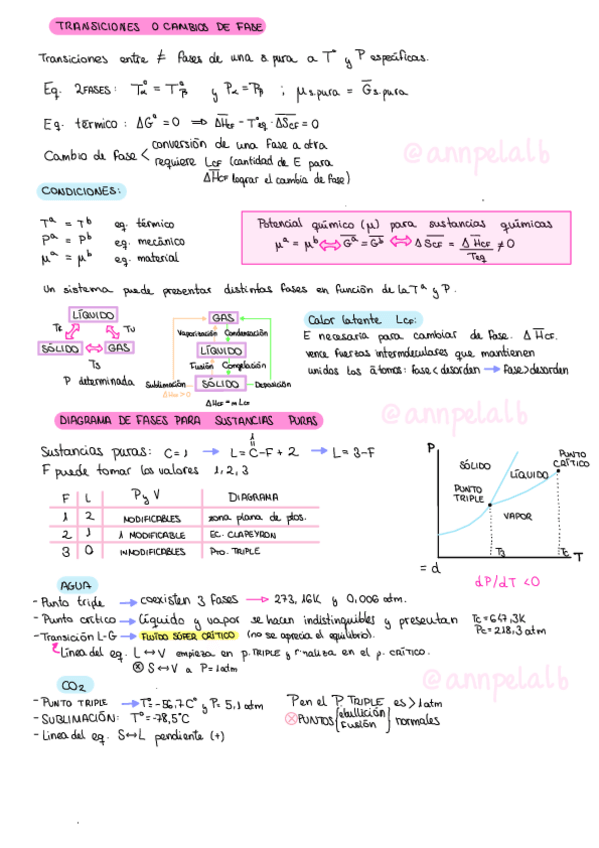 TRANSICIONES O CAMBIOS DE FASE
Transiciones entre ≠ fases de una s.pura a Tª y P específicas.
Eq. 2FASES: Tαª = Tβª y Pα = Pβ ; μs.pura = G̅s.pura
Eq. térmico: ΔGª = 0 ⇒ ΔH̅CF - Tªeq · ΔS̅CF = 0
Cambio de fase < conversión de una fase a otra
requiere LCF (cantidad de E para
ΔH̅CF lograr el cambio de fase)
@annpelalb
CONDICIONES:
Tª = Tᵇ eq. térmico
Pª = Pᵇ eq. mecánico
μª = μᵇ eq. material
Potencial químico (μ) para sustancias químicas
μª = μᵇ ⇔ G̅ª = G̅ᵇ ⇔ ΔS̅CF = ΔH̅CF / Teq ≠ 0
Un sistema puede presentar distintas fases en función de la Tª y P.
LÍQUIDO
TF TV
SÓLIDO GAS
TS
P determinada
GAS
Vaporización Condensación
LÍQUIDO
Fusión Congelación
Sublimación SÓLIDO Deposición
ΔHCF > 0
ΔHCF = m LCF
Calor latente LCF:
E necesaria para cambiar de fase. ΔH̅CF.
vence fuerzas intermoleculares que mantienen
unidos los átomos: fase < desorden → fase > desorden
DIAGRAMA DE FASES PARA SUSTANCIAS PURAS
@annpelalb
1
Sustancias puras: C = 1 → L = C - F + 2 → L = 3 - F
F puede tomar los valores 1, 2, 3
F L P y V DIAGRAMA
1 2 MODIFICABLES zona plana de ptos.
2 1 1 MODIFICABLE EC. CLAPEYRON
3 0 INMODIFICABLES Pto. TRIPLE
P
SÓLIDO
LÍQUIDO
PUNTO CRÍTICO
PUNTO TRIPLE
VAPOR
T3 Tc T
= d
dP/dT < 0
AGUA
- Punto triple → coexisten 3 fases → 273,16K y 0,006 atm.
- Punto crítico → Líquido y vapor se hacen indistinguibles y presentan Tc = 647,3K
Pc = 218,3 atm
- Transición L-G → FLUIDO SÚPER CRÍTICO (no se aprecia el equilibrio).
Línea del eq. L ↔ V empieza en p. TRIPLE y finaliza en el p. CRÍTICO.
⊗ S ↔ V a P = 1 atm
@annpelalb
CO2
- PUNTO TRIPLE → Tª = -56,7Cº y P = 5,1 atm
- SUBLIMACIÓN: Tª = -78,5ºC
- Línea del eq. S↔L pendiente (+)
P en el P. TRIPLE es > 1 atm
⊗ PUNTOS [ebullición fusión] normales